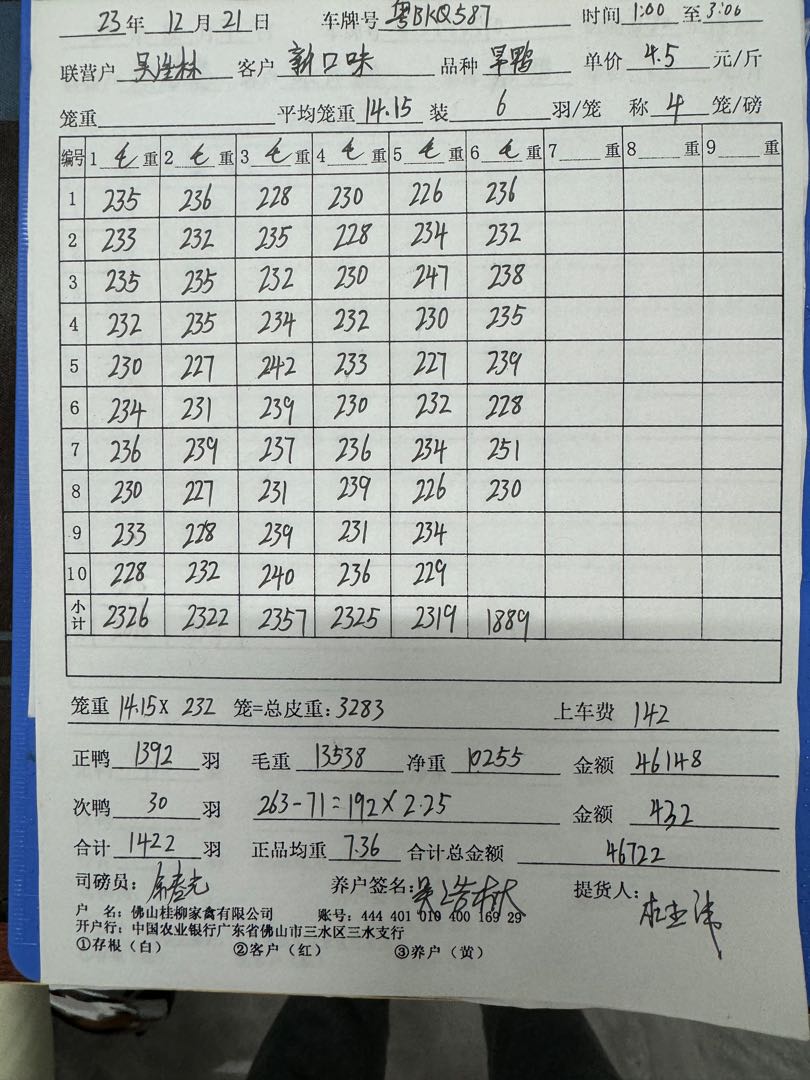 23年 12月21日 车牌号 粤BKQ587 时间 1:00 至 3:06
联营户 吴浩林 客户 新口味 品种 旱鸭 单价 4.5 元/斤
笼重 平均笼重 14.15 装 6 羽/笼 称 4 笼/磅
编号 1 毛 重 2 毛 重 3 毛 重 4 毛 重 5 毛 重 6 毛 重 7 重 8 重 9 重
1 235 236 228 230 226 236
2 233 232 235 228 234 232
3 235 235 232 230 247 238
4 232 235 234 232 230 235
5 230 227 242 233 227 239
6 234 231 239 230 232 228
7 236 239 237 236 234 251
8 230 227 231 239 226 230
9 233 228 239 231 234
10 228 232 240 236 229
小计 2326 2322 2357 2325 2319 1889
笼重 14.15 X 232 笼=总皮重: 3283 上车费 142
正鸭 1392 羽 毛重 13538 净重 10255 金额 46148
次鸭 30 羽 263-71=192×2.25 金额 432
合计 1422 羽 正品均重 7.36 合计总金额 46722
司磅员: 养户签名: 吴浩林 提货人:
户 名: 佛山桂柳家禽有限公司 账号: 444 401 010 400 169 29
开户行: 中国农业银行广东省佛山市三水区三水支行
①存根(白) ②客户(红) ③养户(黄)